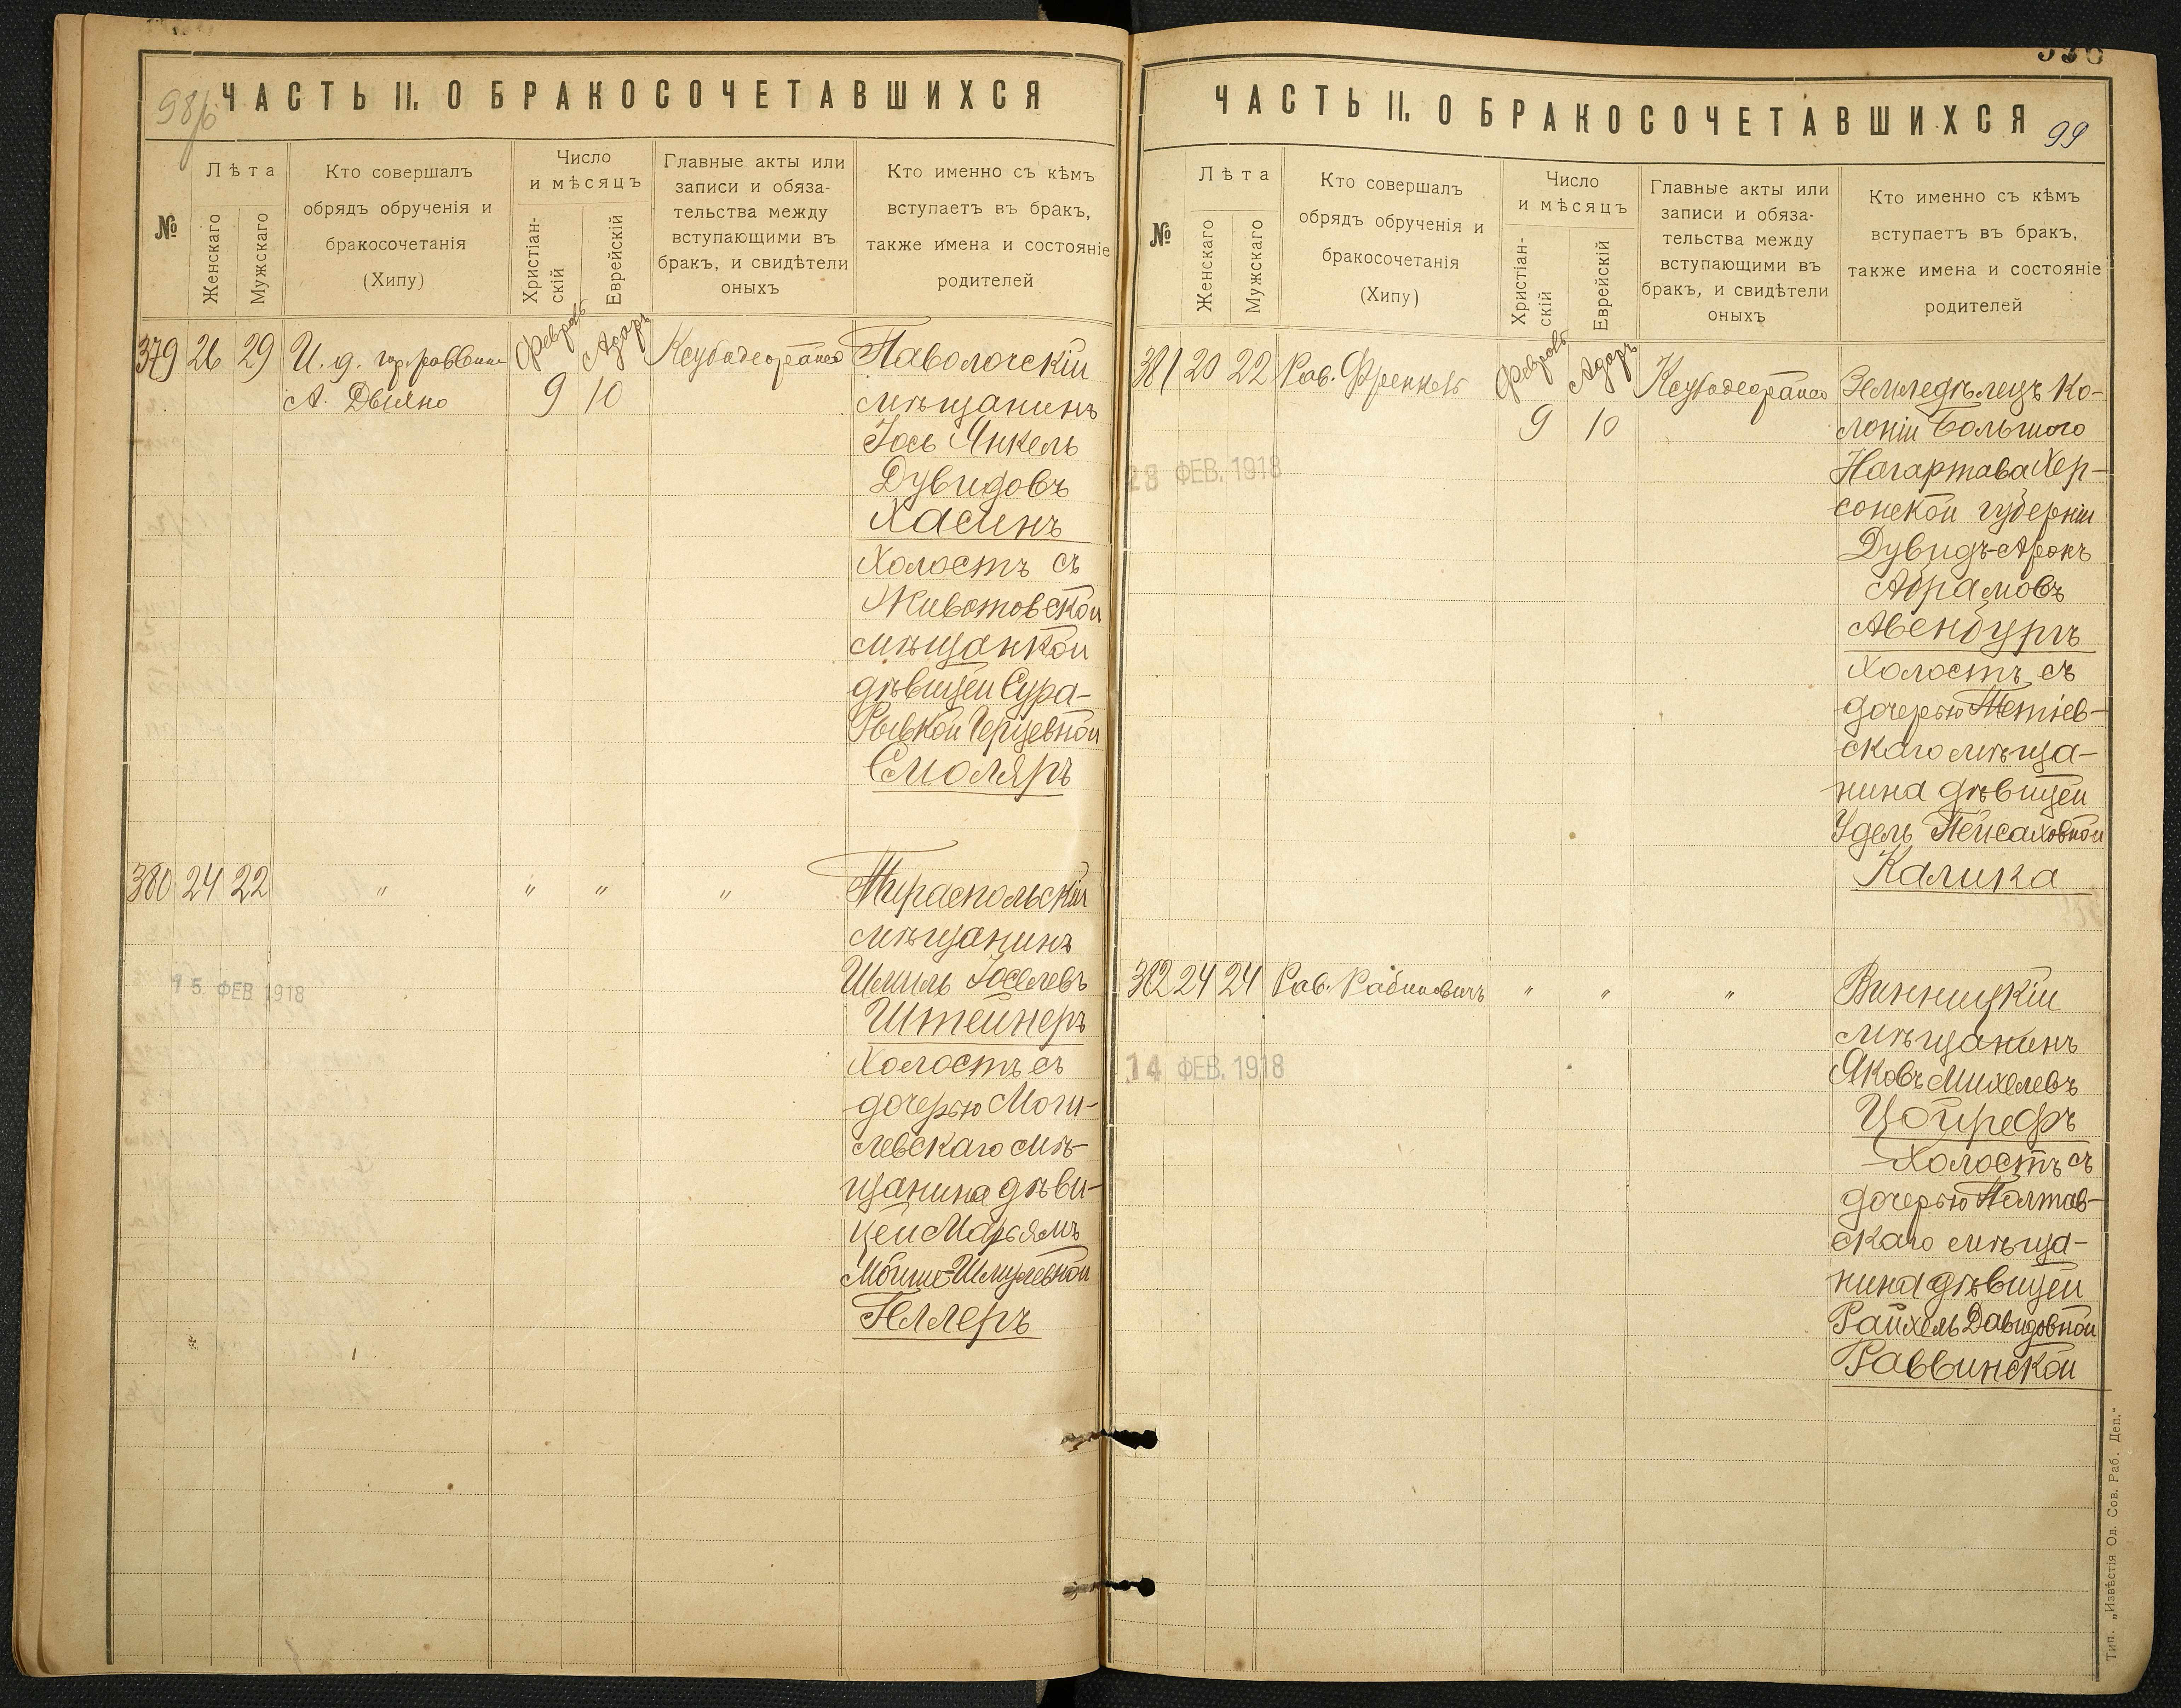 98/б
ЧАСТЬ II. О БРАКОСОЧЕТАВШИХСЯ
№
Лѣта
Женскаго
Мужскаго
Кто совершалъ
обрядъ обрученія и
бракосочетанія
(Хипу)
Число
и мѣсяцъ
Христіан-
скій
Еврейскій
Главные акты или
записи и обяза-
тельства между
вступающими въ
бракъ, и свидѣтели
оныхъ
Кто именно съ кѣмъ
вступаетъ въ бракъ,
также имена и состояніе
родителей
379 26 29 И. д. гор. раввина
А. Двіяно
Февраль
9
Адаръ
10
Паволочскій
мѣщанинъ
Іось Янкель
Дувидовъ
Хасинъ
Холостъ съ
Животовской
мѣщанкой
дѣвицей Сура-
Рывкой Герцевной
Смоляръ
380 24 22 " " " "
Тираспольскій
мѣщанинъ
Шмиль Іоселевъ
Штейнеръ
Холостъ съ
дочерью Моги-
левскаго мѣ-
щанина дѣви-
цей Марьямъ
Мойше-Шмулевной
Геллеръ
15. ФЕВ. 1918
ЧАСТЬ II. О БРАКОСОЧЕТАВШИХСЯ
99
№
Лѣта
Женскаго
Мужскаго
Кто совершалъ
обрядъ обрученія и
бракосочетанія
(Хипу)
Число
и мѣсяцъ
Христіан-
скій
Еврейскій
Главные акты или
записи и обяза-
тельства между
вступающими въ
бракъ, и свидѣтели
оныхъ
Кто именно съ кѣмъ
вступаетъ въ бракъ,
также имена и состояніе
родителей
381 20 22 Рав. Френкель
Февраль
9
Адаръ
10
Земледѣлецъ Ко-
лоніи Большого
Нагартава Хер-
сонской губерніи
Дувидъ-Аронъ
Абрамовъ
Авенбургъ
Холостъ съ
дочерью Тетіев-
скаго мѣща-
нина дѣвицей
Удель Пейсаховной
Калика
28 ФЕВ. 1918
382 24 24 Рав. Рабиновичъ " " "
Винницкій
мѣщанинъ
Яковъ Михелевъ
Цойрефъ
Холостъ съ
дочерью Полтав-
скаго мѣща-
нина дѣвицей
Райхель Давидовной
Раввинской
14 ФЕВ. 1918
Тип. „Извѣстія Од. Сов. Раб. Деп."